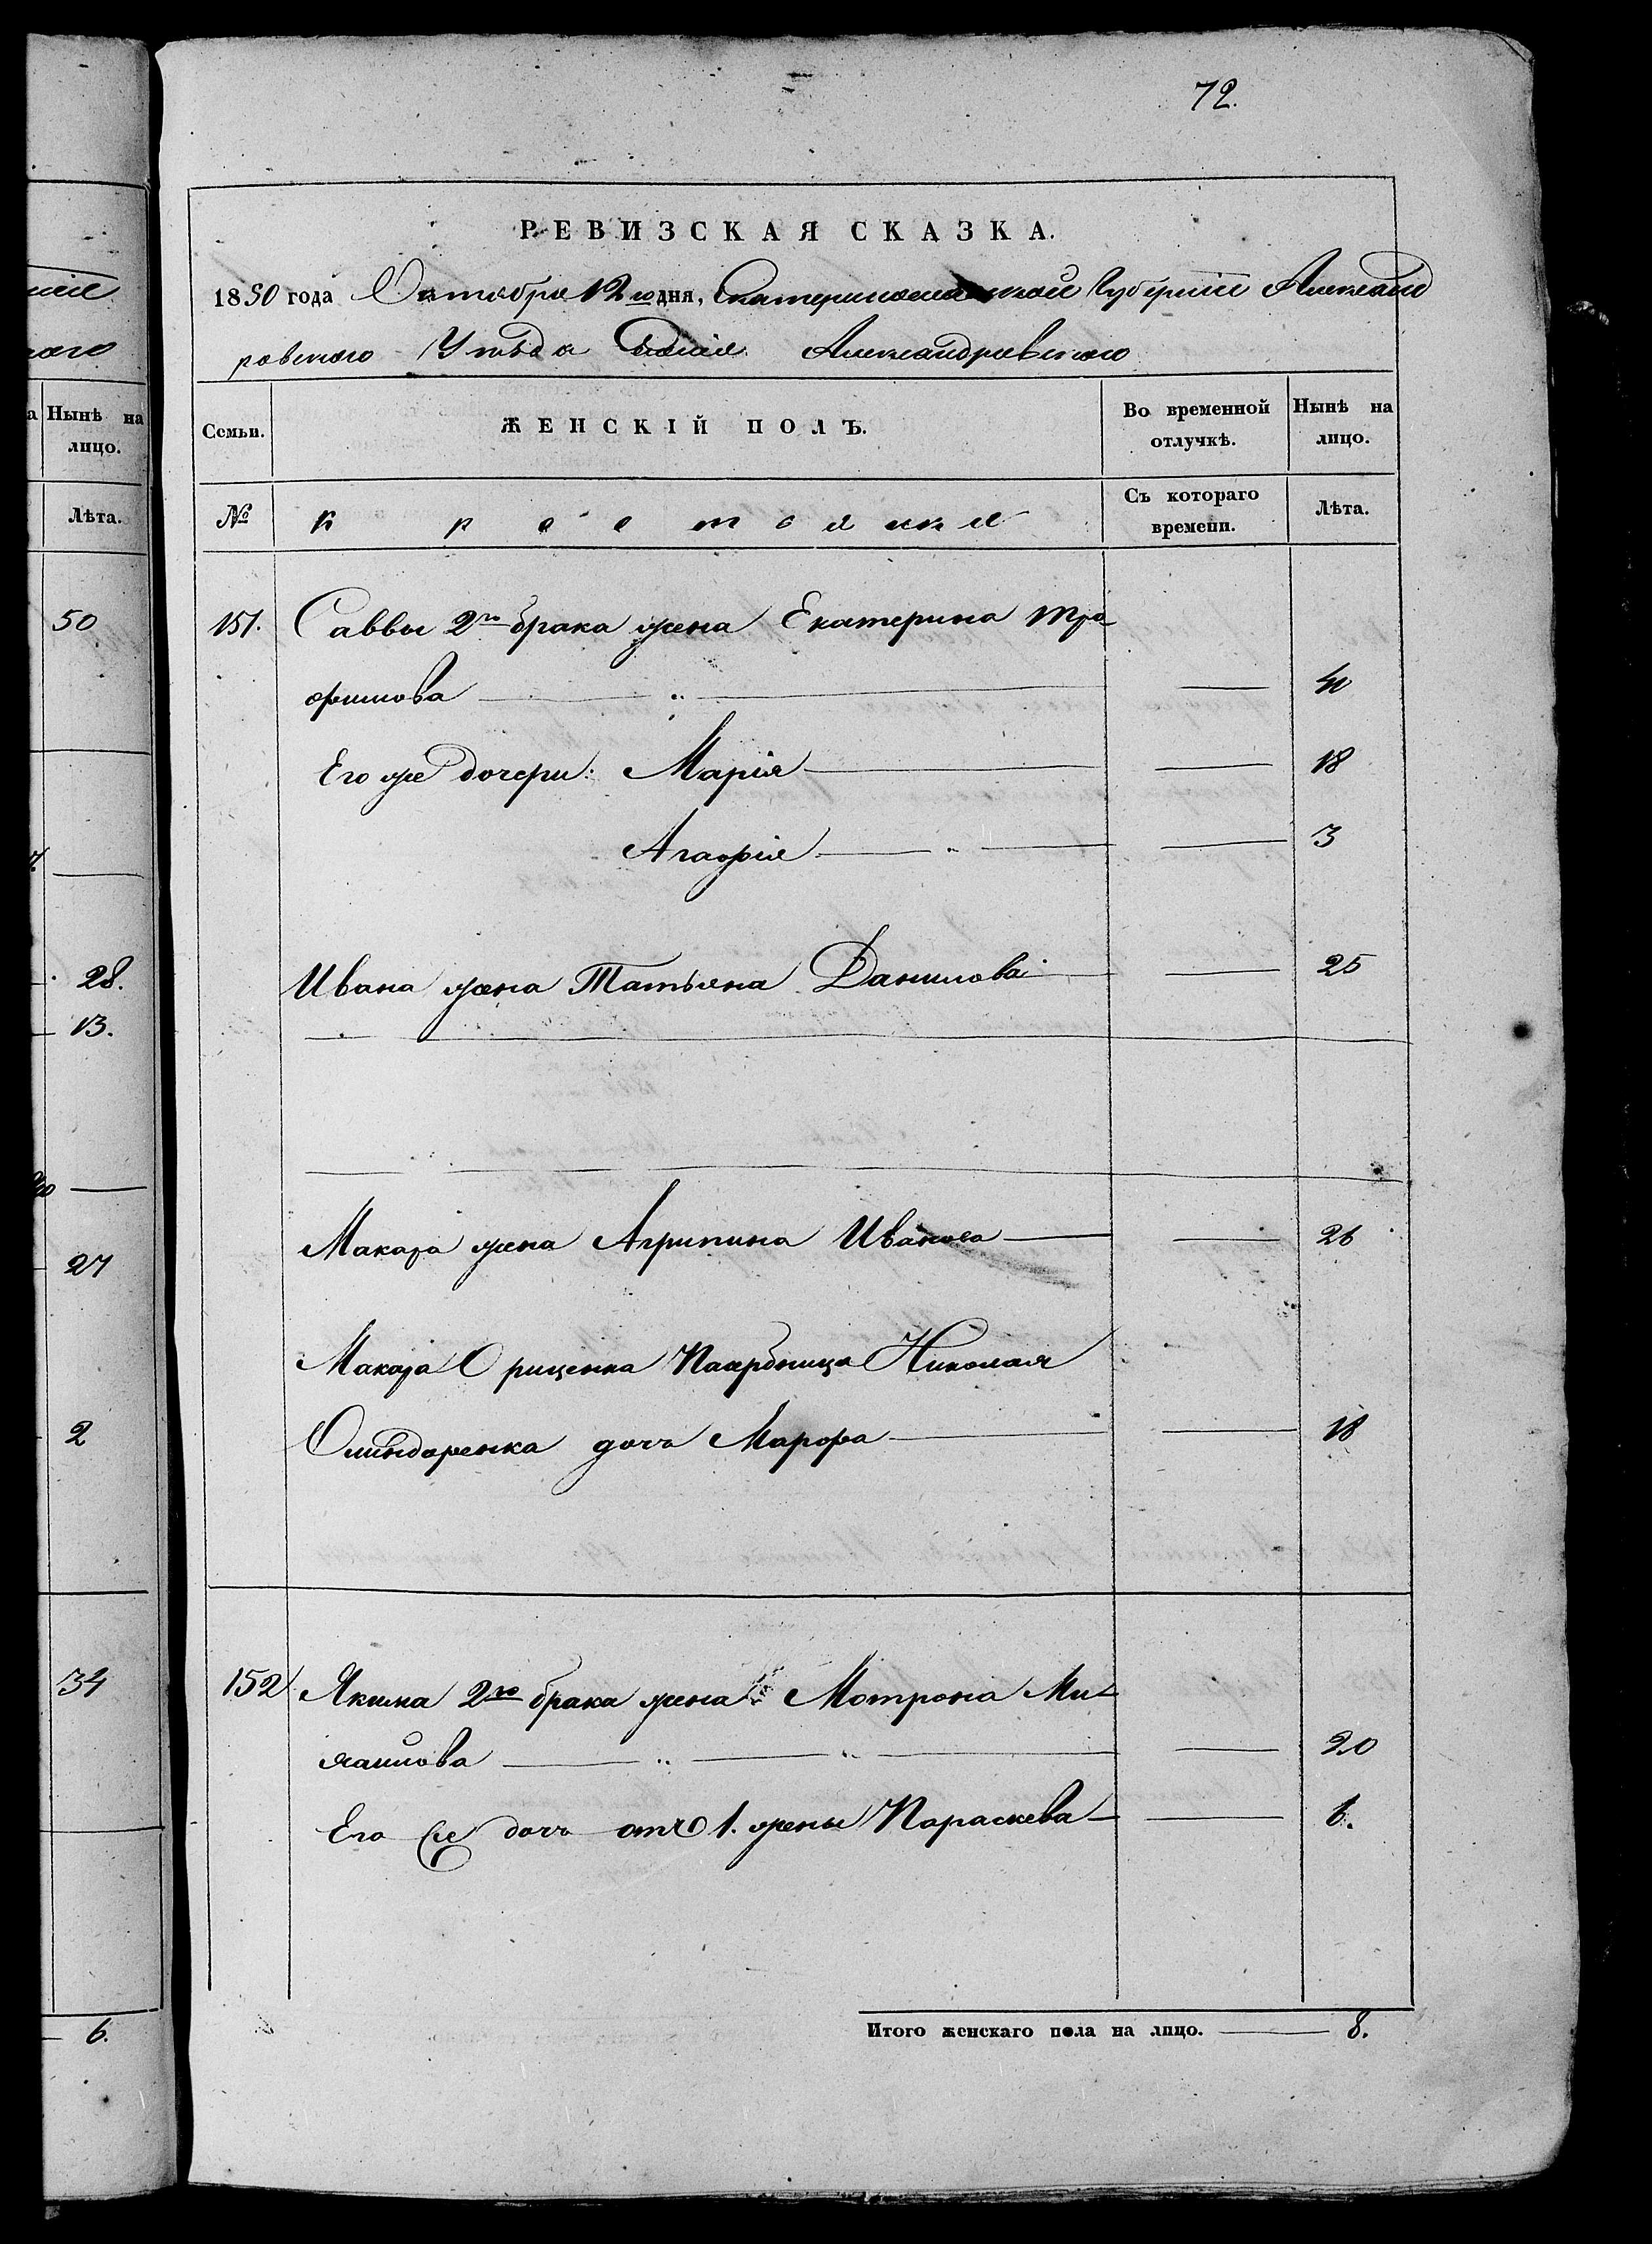 72.
РЕВИЗСКАЯ СКАЗКА.
1850 года Октября 12го дня, Екатеринославской Губернии Александ
ровского Уезда Александровского
Семьи.
ЖЕНСКІЙ ПОЛЪ.
Во временной отлучкѣ.
Нынѣ на лицо.
№
Съ котораго времени.
Лѣта.
151. Саввы 2го брака жена Екатерина Тро
фимова — 40
Его же дочери: Марія — 18
Агафія — 3
Ивана жена Татьяна Данилова — 25
Макара жена Агрипина Иванова — 26
Макара Николая
дочь Марфа — 18
152. Якима 2го брака жена Мотрона Ми
хайлова — 20
Его же дочь отъ 1. жены Параскева — 6.
Итого женскаго пола на лицо. — 8.
Нынѣ на
лицо.
Лѣта.
50
28.
13.
27
2
34
6.